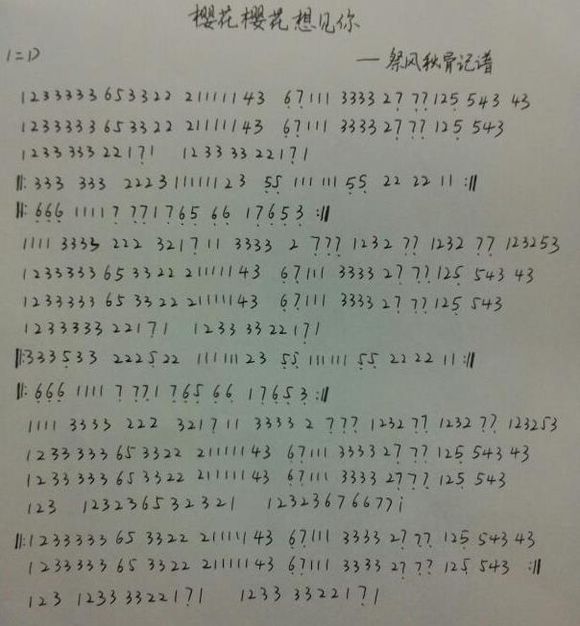 樱花樱花想见你
1=D
—祭风秋骨记谱
1233333 653322 21111143 67111 3333 27 77 125 543 43
1233333 653322 21111143 67111 3333 27 77 125 543
1233 333 22171 1233 33 22171
‖: 333 333 2223 1111111 23 55 111 111 55 22 22 11 :‖
‖: 666 1111 7 771 765 66 17653 :‖
1111 3333 222 3217 11 3333 2 777 1232 77 1232 77 123253
1233333 65 3322 21111143 67111 3333 27 77 125 543 43
1233333 65 3322 21111143 67111 3333 27 77 125 543
1233333 22171 1233 33 22171
‖: 333533 222522 111111 23 55 111111 55 22 22 11 :‖
‖: 666 1111 7 771 765 66 17653 :‖
1111 3333 222 3217 11 3333 2 777 1232 77 1232 77 123253
1233333 65 3322 21111143 67111 3333 27 77 125 543 43
1233333 65 3322 21111143 67111 3333 2777 125 543
123 123236532321 123236766771
‖: 1233333 65 3322 21111143 67111 3333 27 77 125 543 43
1233333 65 3322 21111143 67111 3333 27 77 125 543 :‖
123 1233 3322171 1233 3322171